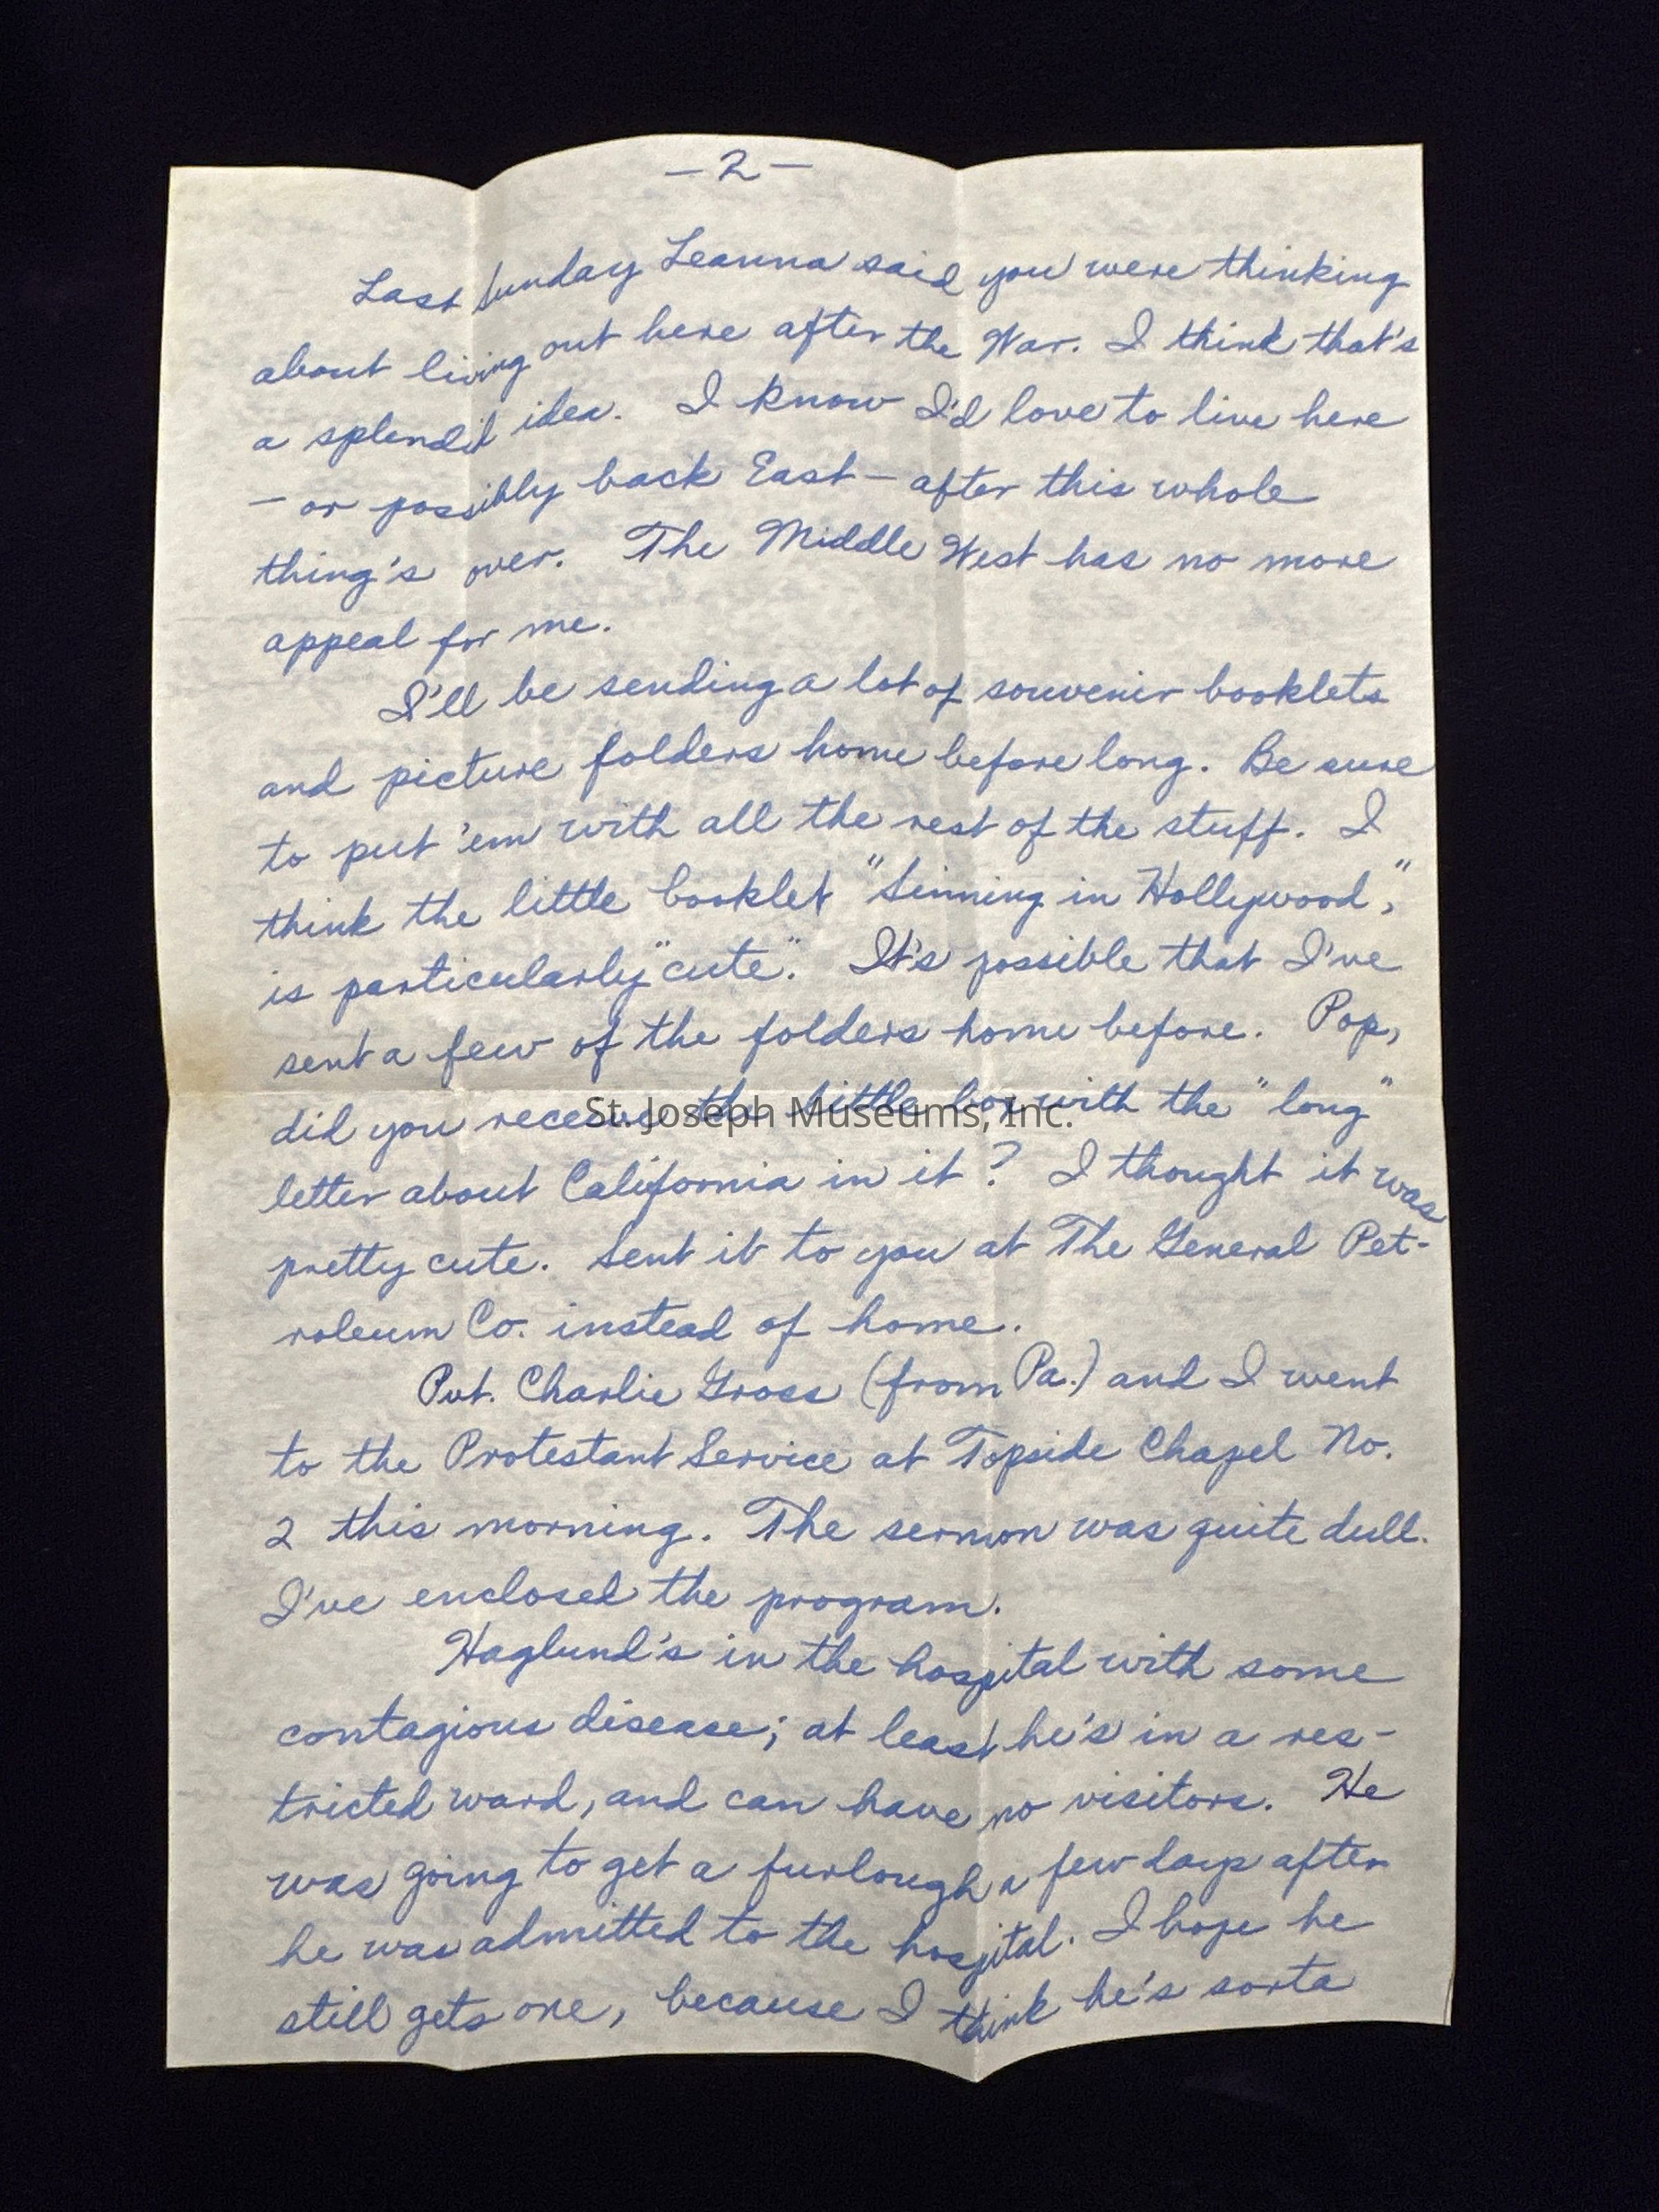 -2-
Last Sunday Leanna said you were thinking
about living out here after the War. I think that's
a splendid idea. I know I'd love to live here
- or possibly back East - after this whole
thing's over. The Middle West has no more
appeal for me.
I'll be sending a lot of souvenir booklets
and picture folders home before long. Be sure
to put 'em with all the rest of the stuff. I
think the little booklet "Sinning in Hollywood,"
is particularly "cute." It's possible that I've
sent a few of the folders home before. Pop,
did you receive the little box with the "long"
St. Joseph Museums, Inc.
letter about California in it? I thought it was
pretty cute. Sent it to you at The General Pet-
roleum Co. instead of home.
Pvt. Charlie Gross (from Pa.) and I went
to the Protestant Service at Topside Chapel No.
2 this morning. The sermon was quite dull.
I've enclosed the program.
Haglund's in the hospital with some
contagious disease; at least he's in a res-
tricted ward, and can have no visitors. He
was going to get a furlough a few days after
he was admitted to the hospital. I hope he
still gets one, because I think he's sorta